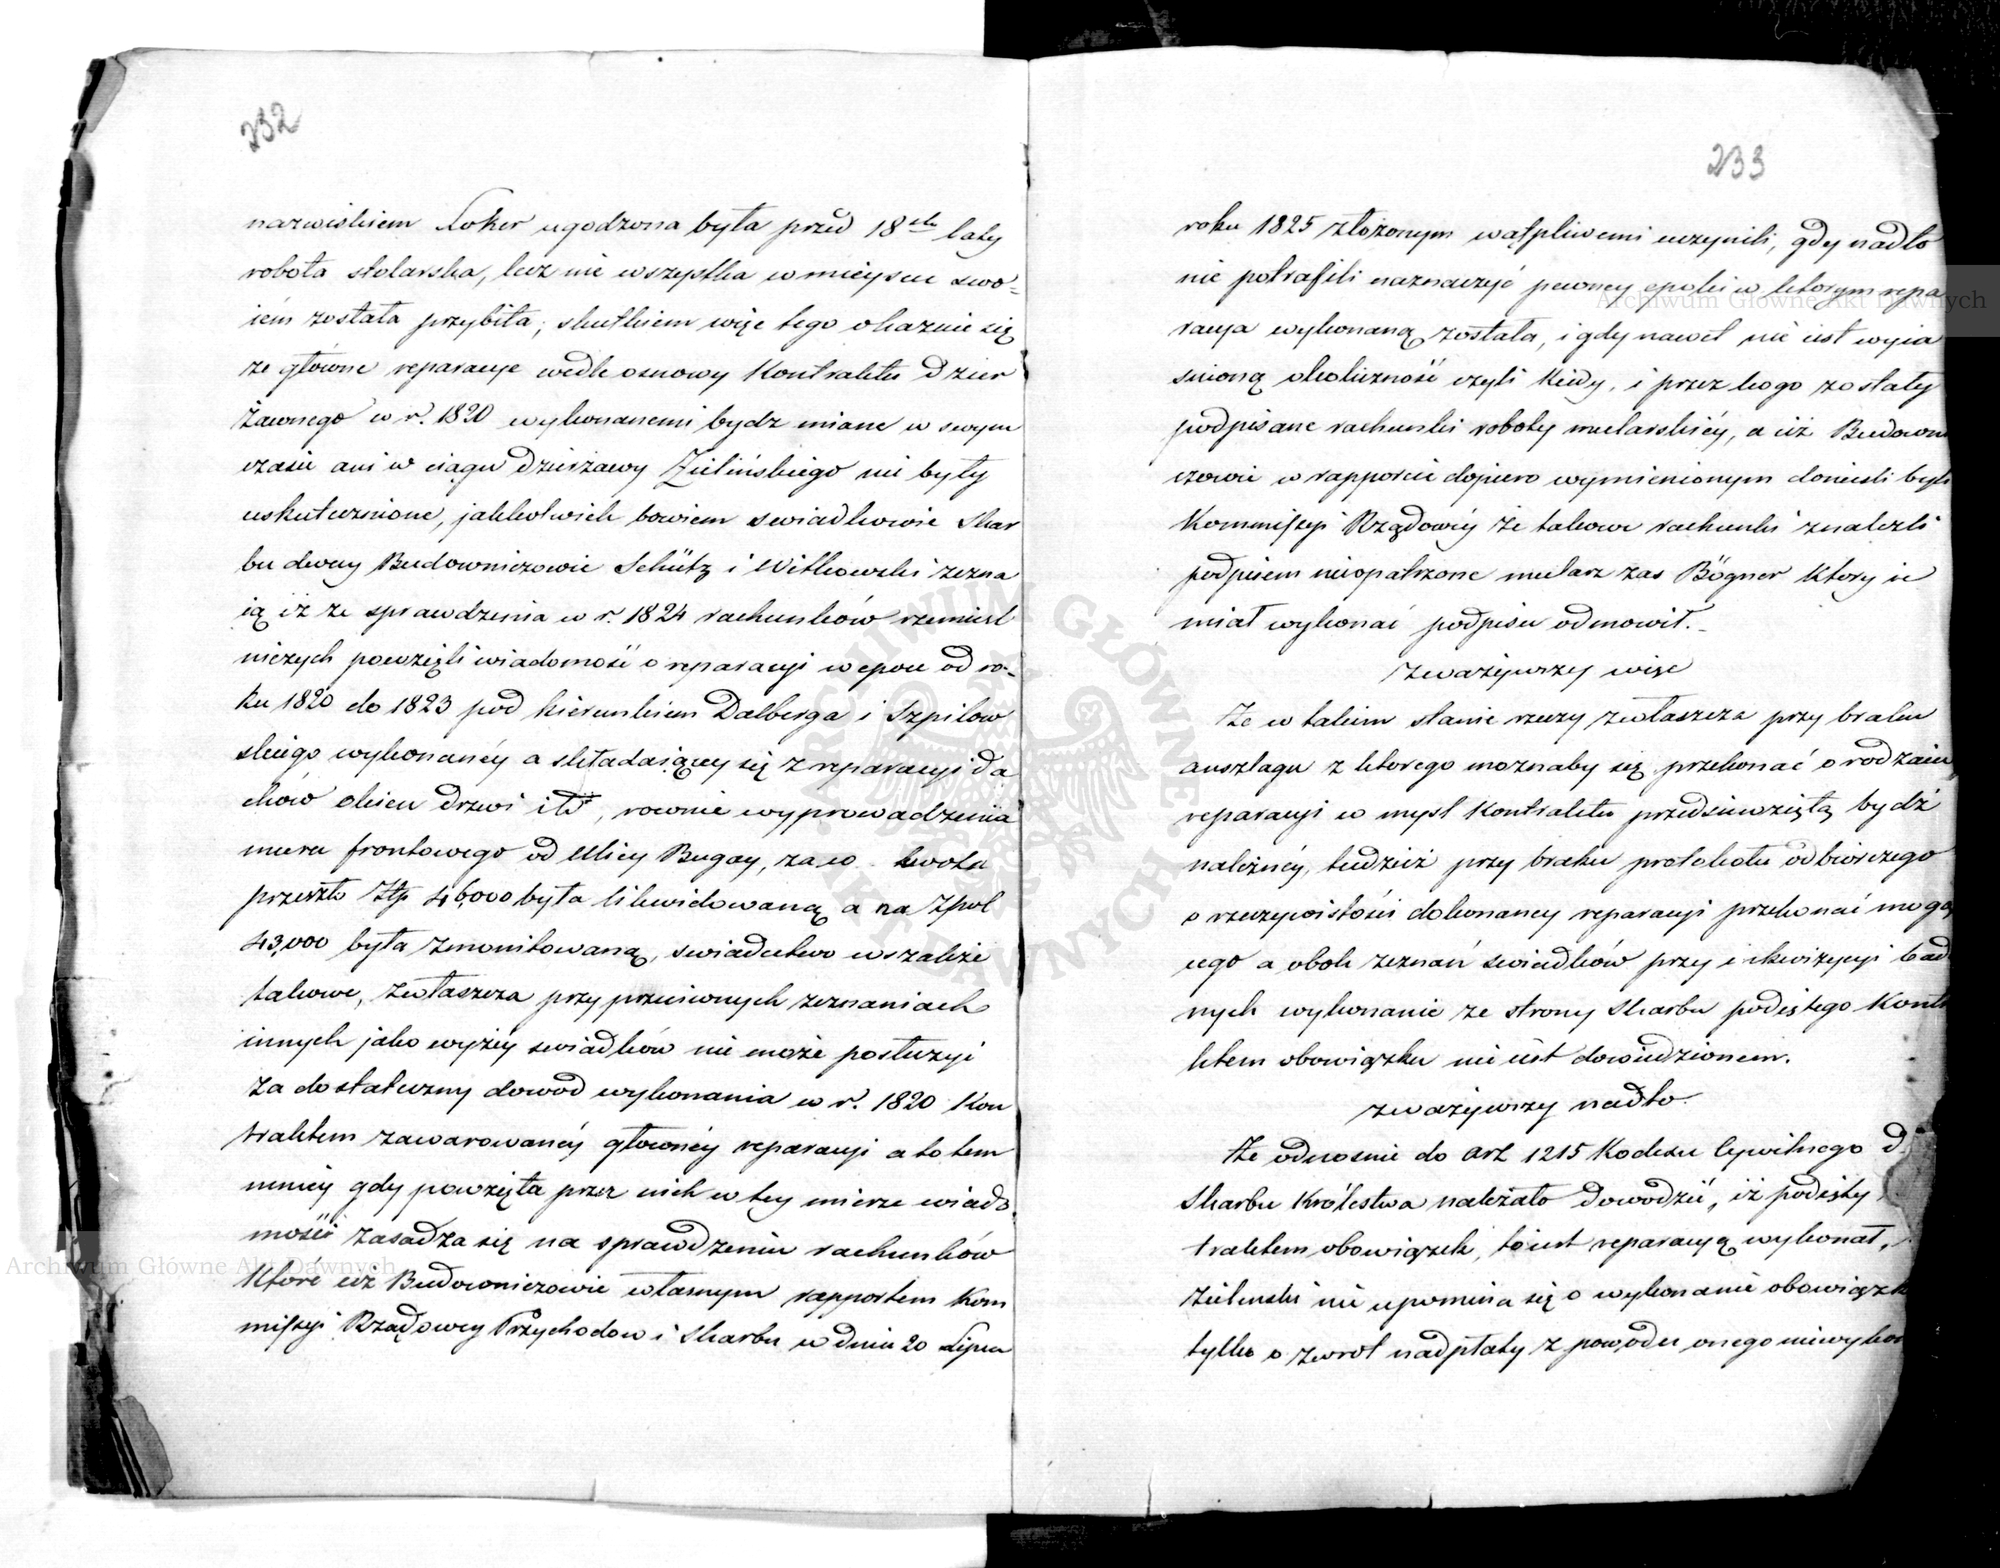 232
nazwiskiem Loker ugodzona była przed 18stu laty
robota stolarska, lecz nie wszystka w mieyscu swo=
iém została przybita; skutkiem więc tego okazuie się
że główne reparacye wedle osnowy Kontraktu dzier
żawnego w r. 1820 wykonanemi bydz miane w swym
czasie ani w ciągu dzierżawy Zielińskiego nie były
uskutecznione, jakkolwiek bowiem swiadkowie Skar
bu dway Budowniczowie Schütz i Witkowski zezna
ią iż ze sprawdzenia w r. 1824 rachunków rzemieśl
niczych powzięli wiadomość o reparacyi w epoce od ro-
ku 1820 do 1823 pod kierunkiem Dalberga i Szpilow
skiego wykonanéy a składaiącey się z reparacyi da
chów okien drzwi itd, rownie wyprowadzenia
muru frontowego od Ulicy Bugay, za co kwota
przeszło Złp 46,000 była likwidowaną a na Zpol
43,000 była zmonitowaną, swiadectwo wszakże
takowe, zwłaszcza przy przeciwnych zeznaniach
innych jako wyżey swiadków nie może posłużyć
za dostateczny dowód wykonania w r. 1820 Kon
traktem zawarowanéy głownéy reparacyi a to tem
mniéy gdy powzięta przez nich w tey mierze wiado
mość zasadza się na sprawdzeniu rachunków
które ciż Budowniczowie własnym rapportem Kom
missyi Rządowey Przychodow i Skarbu w dniu 20 Lipca
233
roku 1825 złożonym wątpliwemi uczynili, gdy nadto
nie potrafili naznaczyć pewney epoki w ktorym repa
racya wykonaną została, i gdy nawet nie iest wyia
snioną okoliczność czyli kiedy, i przez kogo zostały
podpisane rachunki roboty mularskiéy, a ciż Budowni
czowie w rapporcie dopiero wymienionym donieśli byli
Kommissyi Rządowéy że takowe rachunki znalezli
podpisem nieopatrzone mularz zas Bögner ktory ie
miał wykonać podpisu odmowił.-
Zważywszy więc
Że w takim stanie rzeczy zwłaszcza przy braku
anszlagu z ktorego moznaby się przekonać o rodzaiu
reparacyi w mysl Kontraktu przedsiewziętą bydź
należnéy, tudzież przy braku protokołu odbiorczego
o rzeczywistości dokonaney reparacyi przekonać mogą
cego a obok zeznań swiadków przy inkwizycyi bad
nych wykonanie ze strony Skarbu podiętego Kontr
ktem obowiązku nie iest dowiedzionem.
zważywszy nadto.
Że odnosnie do art 1215 Kodexu Cywilnego d
Skarbu Królestwa należało dowodzić, iż podięty
traktem obowiązek, to iest reparacyą wykonał,
Zielinski nie upomina się o wykonanie obowiązk
tylko o zwrot nadpłaty z powodu onego niewykon